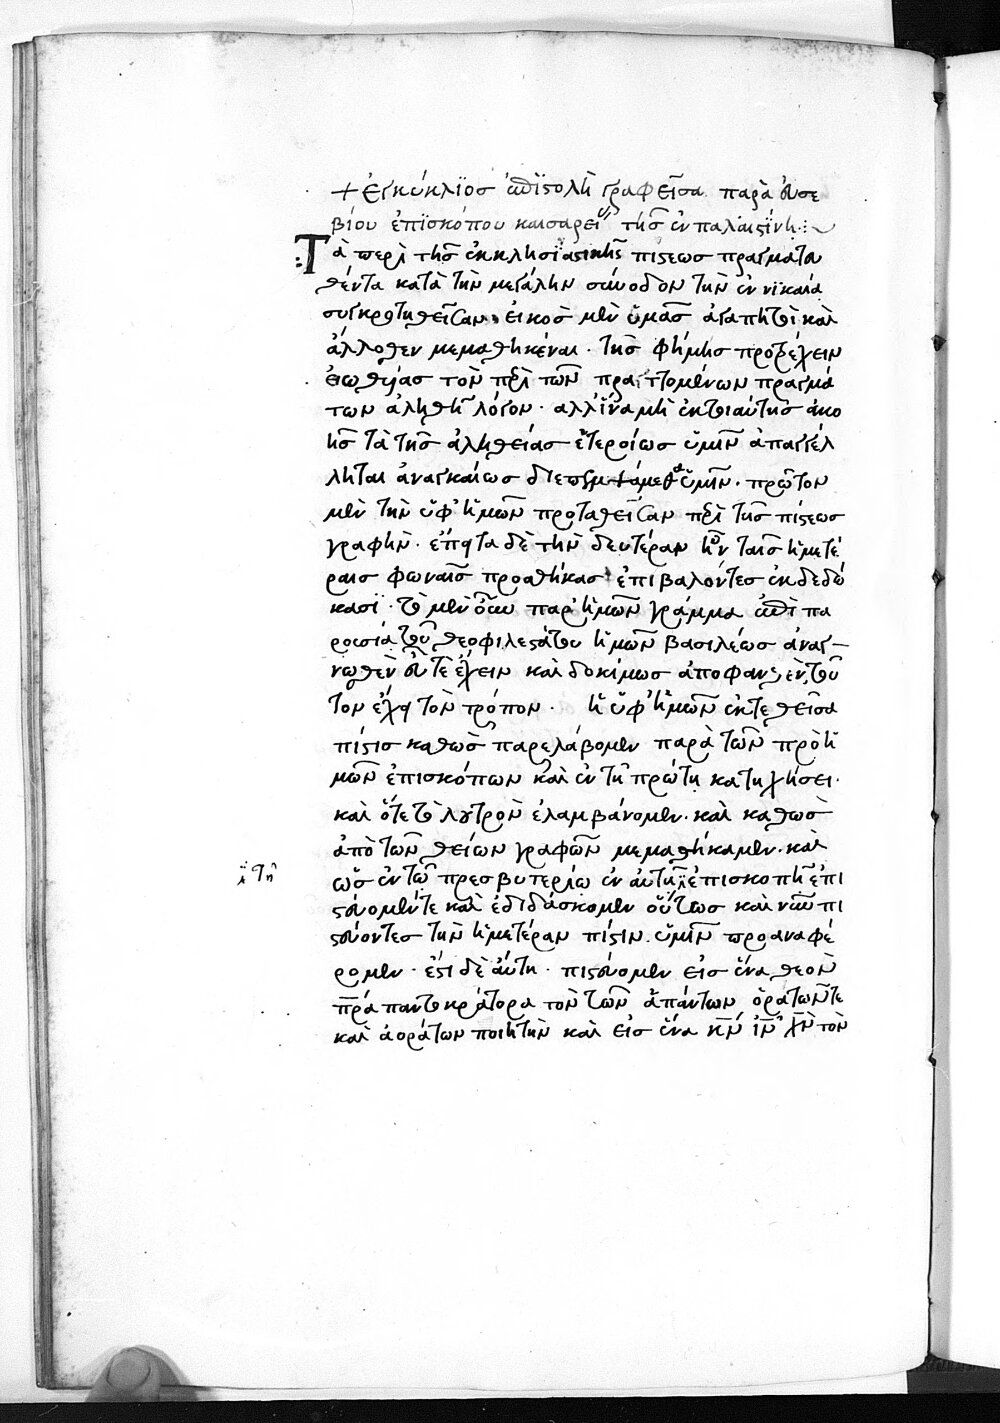 + ἐγκύκλϊος ἐπϊστολὴ γραφεῖσα παρὰ εὐσε
βίου ἐπϊσκόπου καισαρεί τῆς ἐν παλαιστίνη :~
Τὰ περὶ τῆς ἐκκλησϊαστικῆς πίστεως πραγματευ
θέντα κατὰ τὴν μεγάλην σύνοδον τὴν ἐν νϊκαία
συγκροτηθεῖσαν, εἰκὸς μὲν ὑμᾶς ἀγαπητοὶ καὶ
ἄλλοθεν μεμαθηκέναι · τῆς φήμης προτρέχειν
εἰωθυίας τὸν περὶ τῶν πραττομένων πραγμά
των ἀληθῆ λόγον · αλλ' ἵνα μὴ ἐκ τοιαύτης ἀκο
ῆς τὰ τῆς ἀληθείας ἑτεροίως ὑμῖν ἀπαγγέλ
ληται ἀναγκαίως διεπεμψάμεθα ὑμῖν · πρῶτον
μὲν τὴν ὑφ' ἡμῶν προταθεῖσαν περὶ τῆς πίστεως
γραφὴν · ἔπειτα δὲ τὴν δευτέραν ἣν ταῖς ἡμετέ
ραις φωναῖς προσθήκας ἐπιβαλόντες ἐκδεδώ
κασϊ · τὸ μὲν οὖν παρ' ἡμῶν γράμμα ἐπὶ πα
ρουσία τοῦ θεοφιλεστάτου ἡμῶν βασιλέως ἀναγ–
νωσθὲν εὖ τὲ ἔχειν καὶ δοκίμως ἀποφανθὲν, τοῦ
τον ἔχει τὸν τρόπον · ἡ ὑφ' ἡμῶν ἐκτεθεῖσα
πίστις καθὼς παρελάβομεν παρὰ τῶν πρὸ ἡ
μῶν ἐπισκόπων καὶ ἐν τῆ πρώτη κατηχήσει ·
καὶ ὅτε τὸ λουτρὸν ἐλαμβάνομεν · καὶ καθὼς
ἀπὸ τῶν θείων γραφῶν μεμαθήκαμεν · καὶ
ὡς ἐν τῶ πρεσβυτερίω ἐν αὐτῆ ἐπισκοπῆ ἐπι
στεύομέν τε καὶ ἐδιδάσκομεν οὕτως καὶ νῦν πι
στεύοντες τὴν ἡμετέραν πίστιν ὑμῖν προαναφέ
ρομεν · ἔστι δὲ αὕτη · πιστεύομεν εἰς ἕνα θεὸν
πρα παντοκράτορα τὸν τῶν ἁπάντων ὁρατῶν τε
καὶ ἀοράτων ποιητὴν καὶ εἰς ἕνα κν ιν χν τὸν